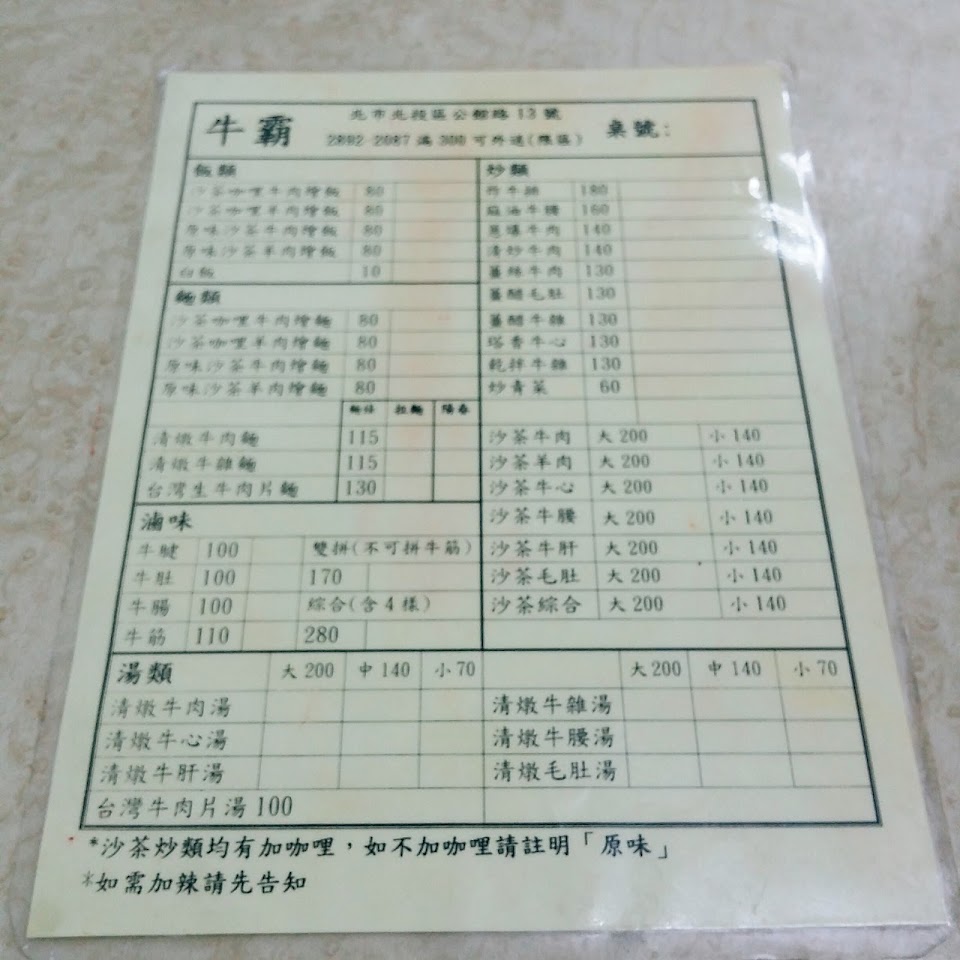 牛霸
北市北投區公館路 13 號
2892-2087 滿 300 可外送(限區)
桌號:
飯類
沙茶咖哩牛肉燴飯 80
沙茶咖哩羊肉燴飯 80
原味沙茶牛肉燴飯 80
原味沙茶羊肉燴飯 80
白飯 10
麵類
沙茶咖哩牛肉燴麵 80
沙茶咖哩羊肉燴麵 80
原味沙茶牛肉燴麵 80
原味沙茶羊肉燴麵 80
拉麵 陽春
清燉牛肉麵 115
清燉牛雜麵 115
台灣生牛肉片麵 130
滷味
牛腱 100 雙拼(不可拼牛筋)
牛肚 100 170
牛腸 100 綜合(含4樣)
牛筋 110 280
炒類
180
麻油牛腰 160
蔥爆牛肉 140
清炒牛肉 140
薑絲牛肉 130
薑醋毛肚 130
薑醋牛雜 130
塔香牛心 130
乾拌牛雜 130
炒青菜 60
沙茶牛肉 大 200 小 140
沙茶羊肉 大 200 小 140
沙茶牛心 大 200 小 140
沙茶牛腰 大 200 小 140
沙茶牛肝 大 200 小 140
沙茶毛肚 大 200 小 140
沙茶綜合 大 200 小 140
湯類 大 200 中 140 小 70
清燉牛肉湯
清燉牛心湯
清燉牛肝湯
台灣牛肉片湯 100
大 200 中 140 小 70
清燉牛雜湯
清燉牛腰湯
清燉毛肚湯
*沙茶炒類均有加咖哩，如不加咖哩請註明「原味」
*如需加辣請先告知